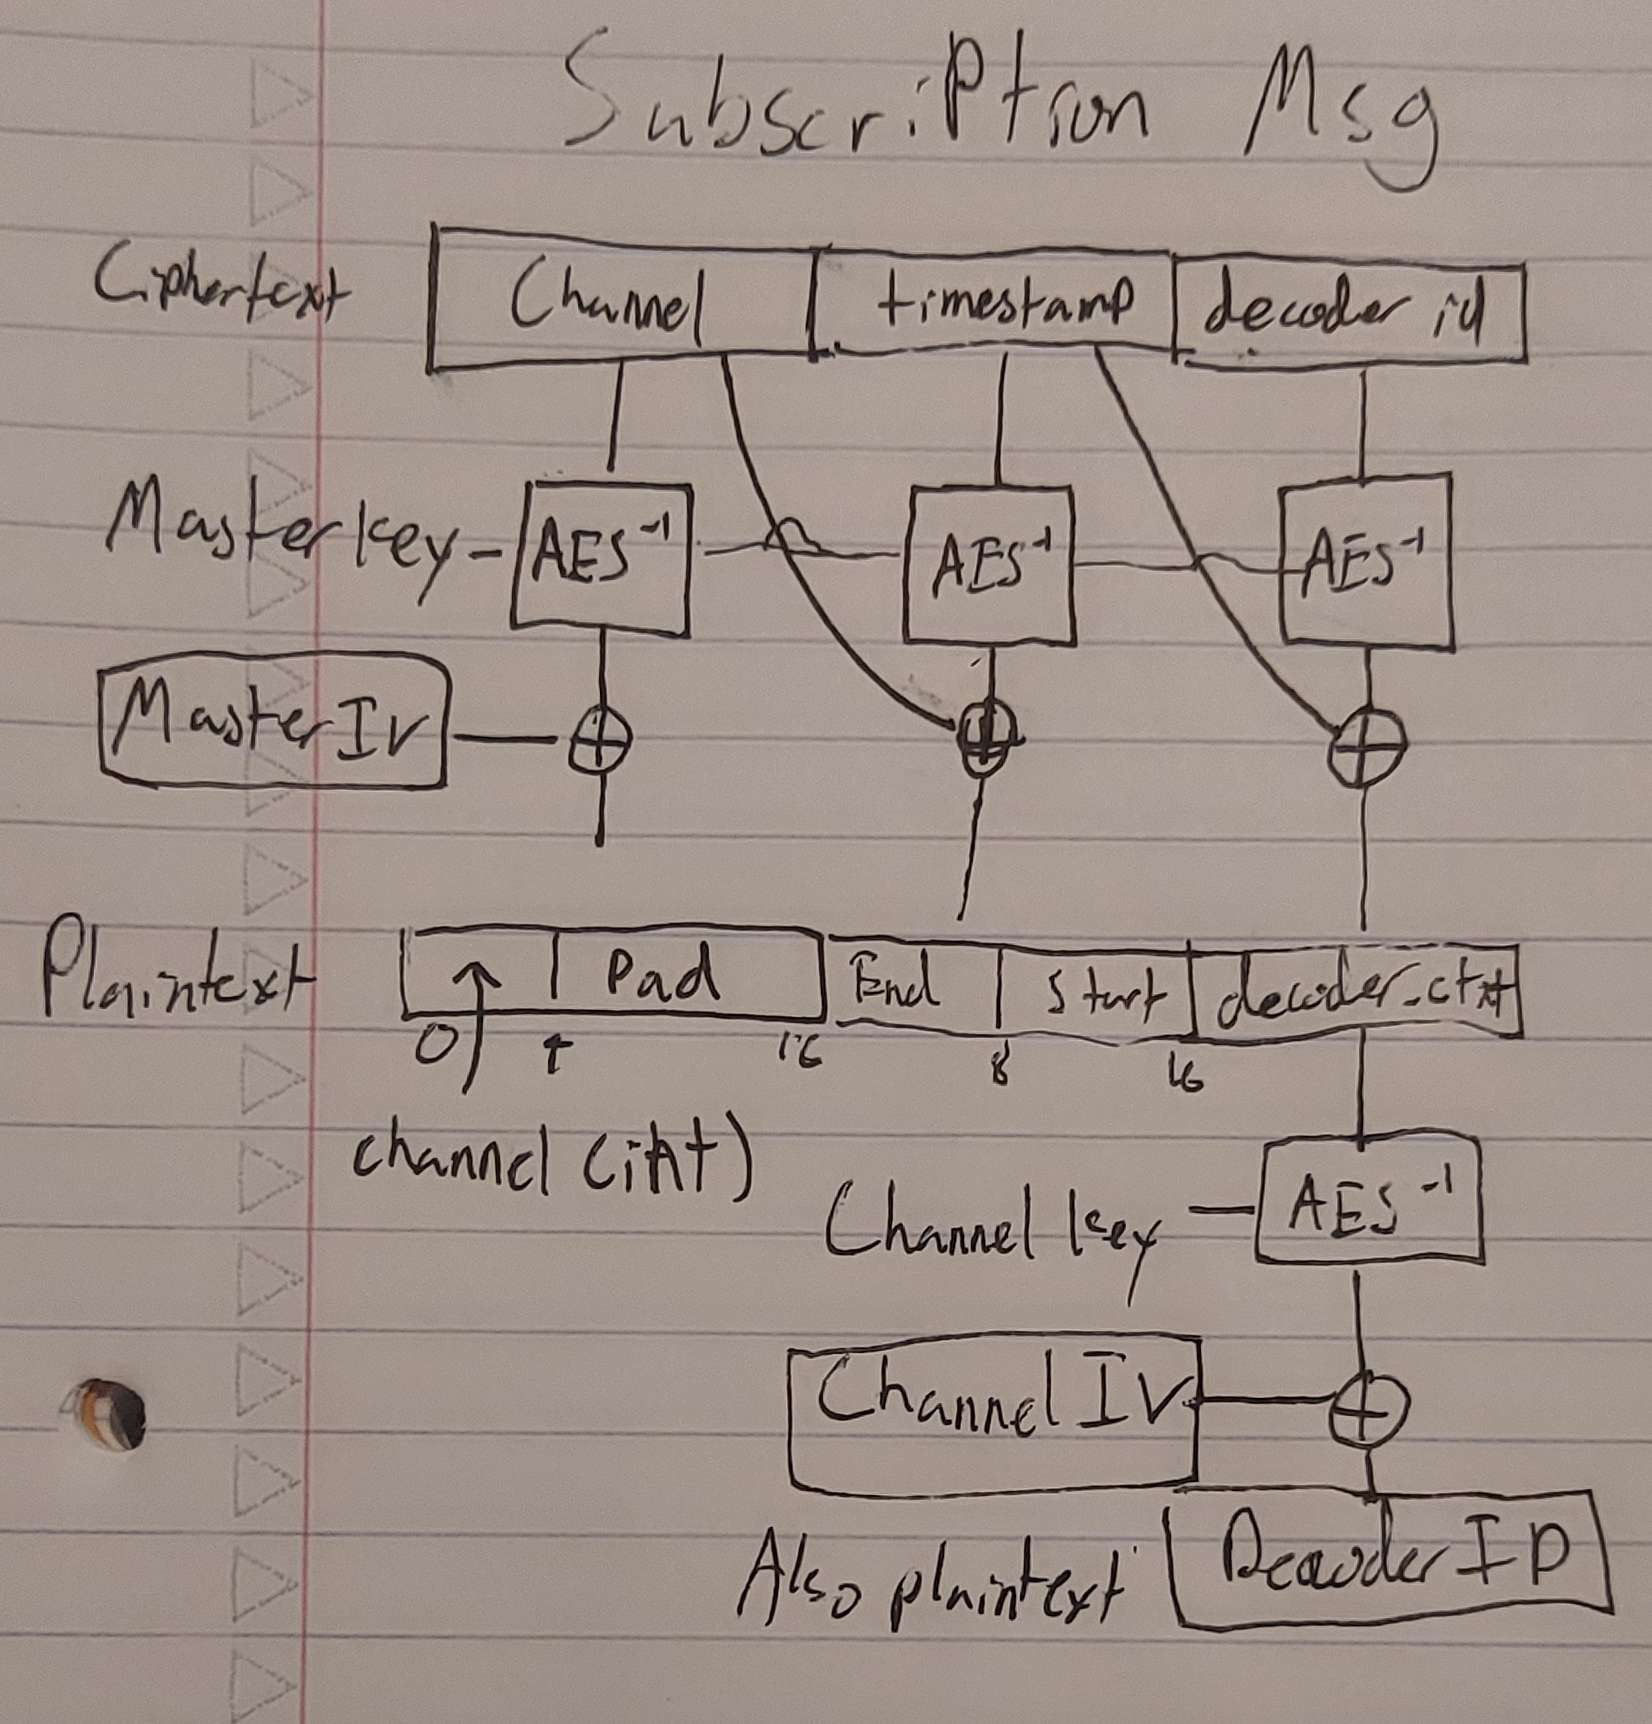 Subscription Msg
Ciphertext Channel timestamp decoder id
Master key AES⁻¹ AES⁻¹ AES⁻¹
Master Iv
Plaintext Pad End Start decoder_ctxt
0 4 16 8 16
channel (int)
Channel key AES⁻¹
Channel IV
Also plaintext Decoder ID